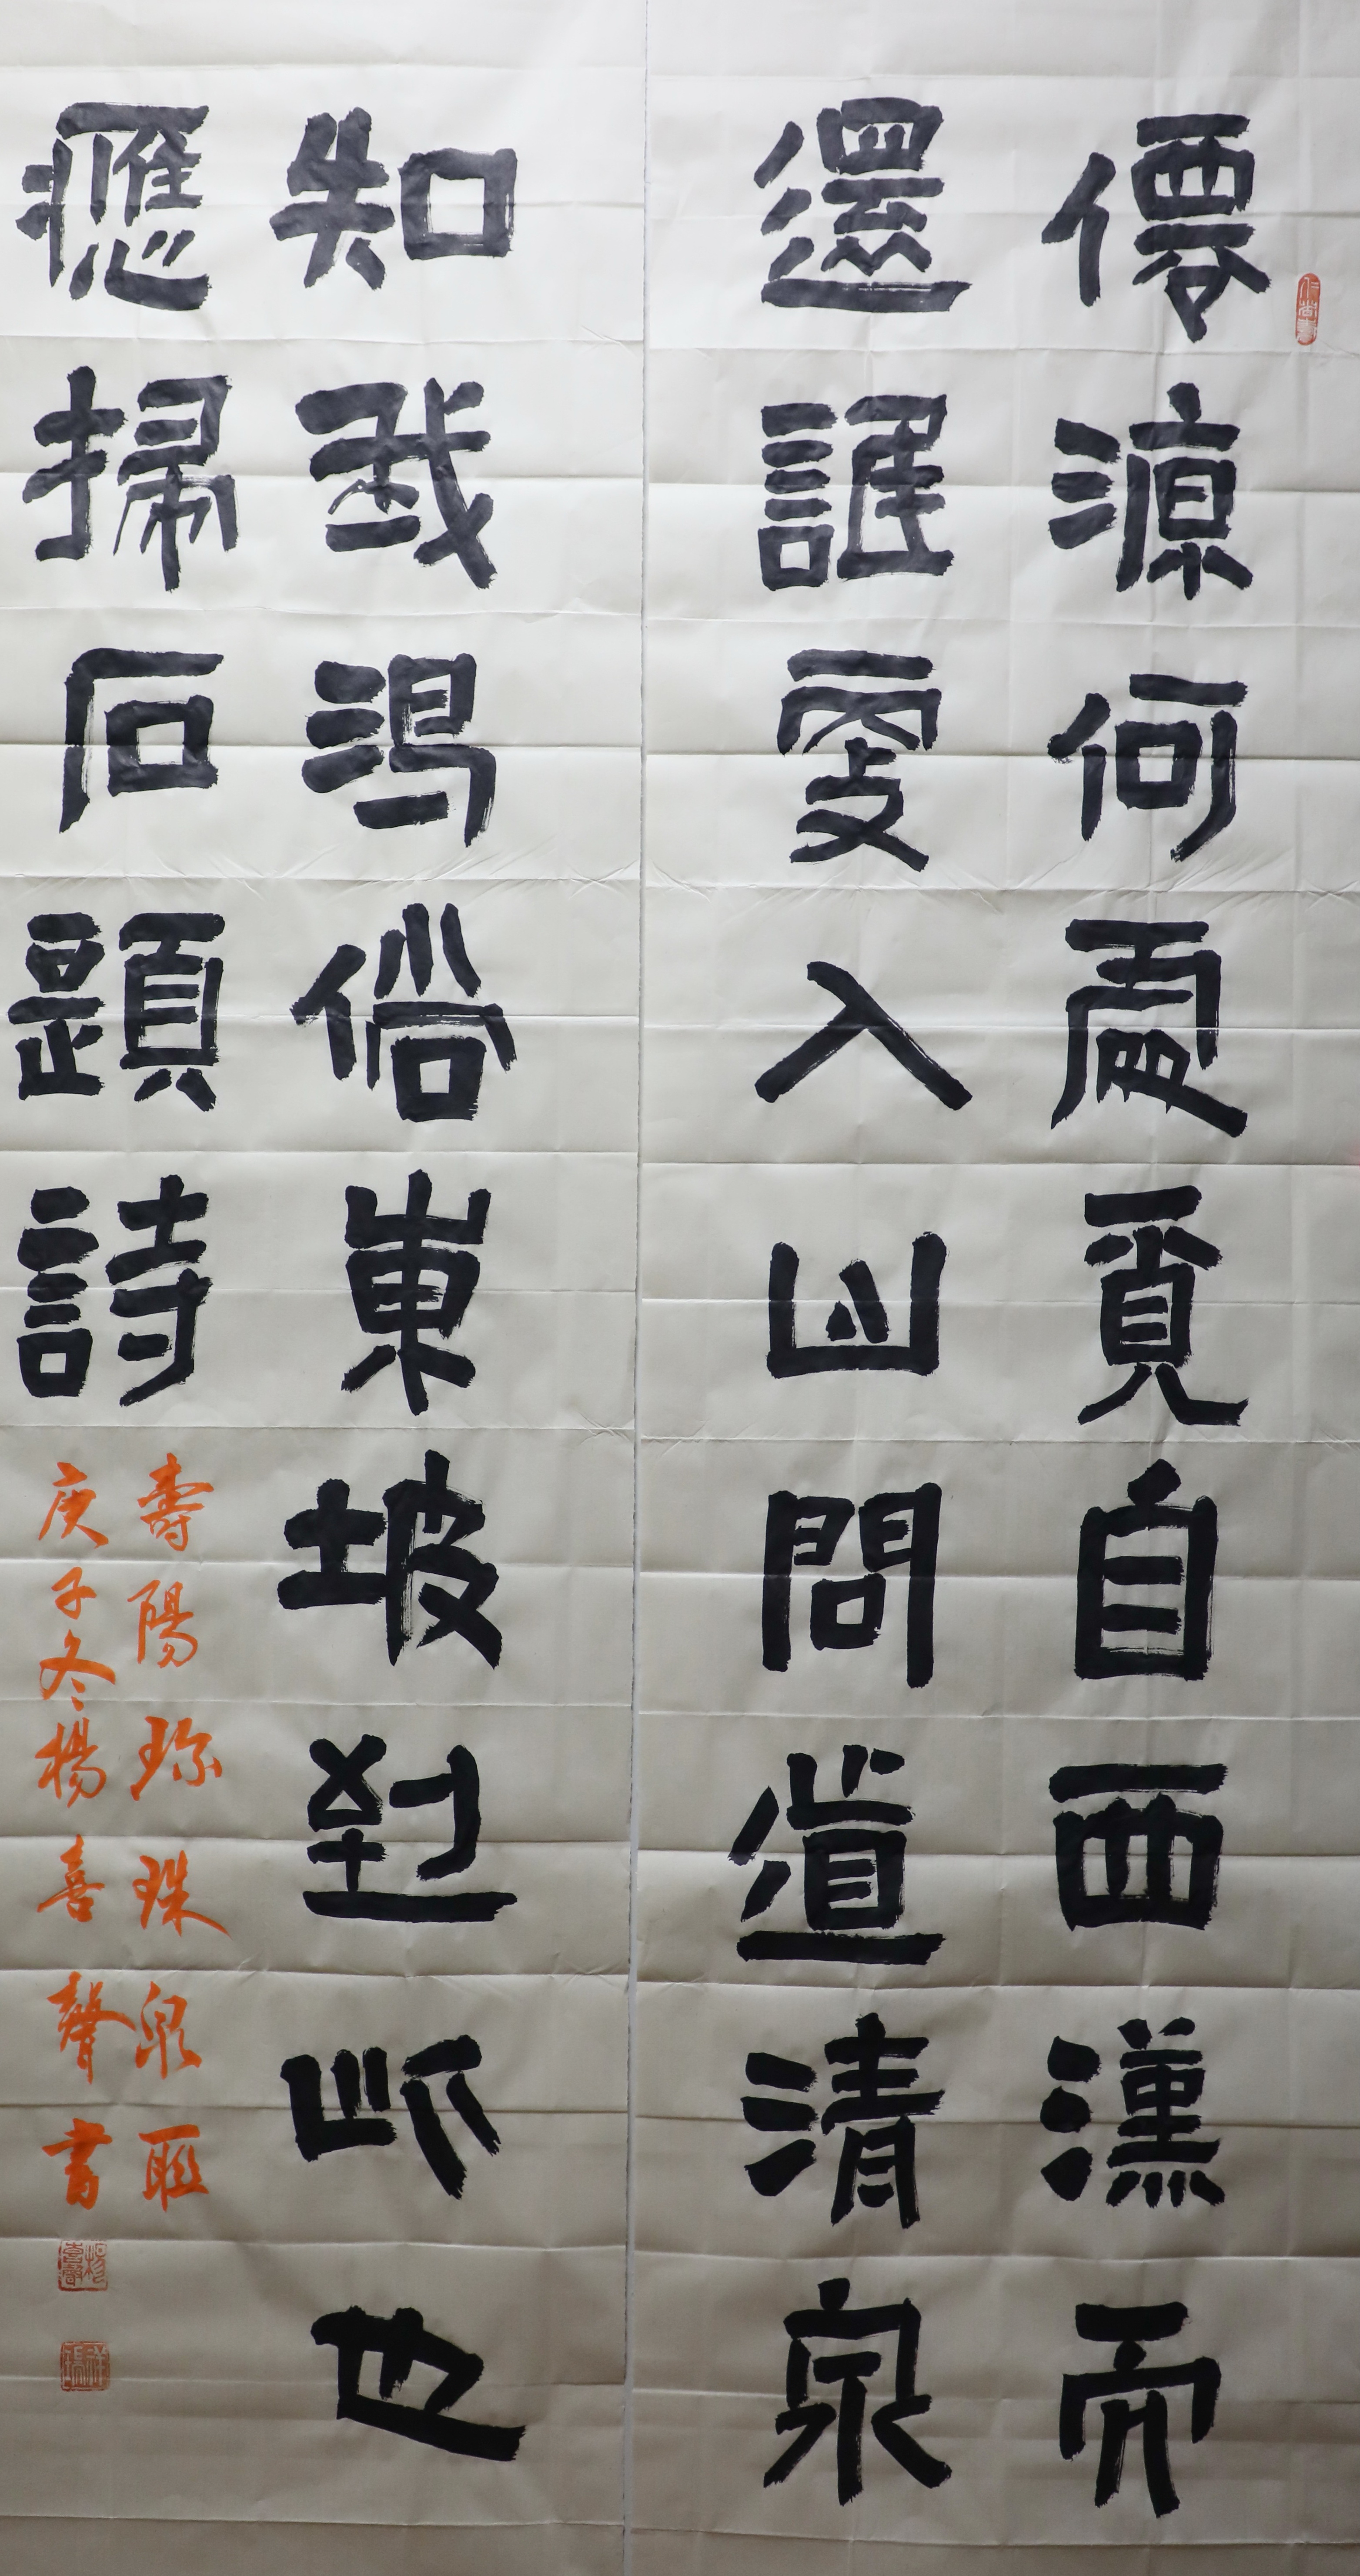 僊源何處覓自西漢而
還誰更入山問道清泉
知我渴倘東坡到此也
應掃石題詩
壽陽珍珠泉聯
庚子冬楊喜聲書